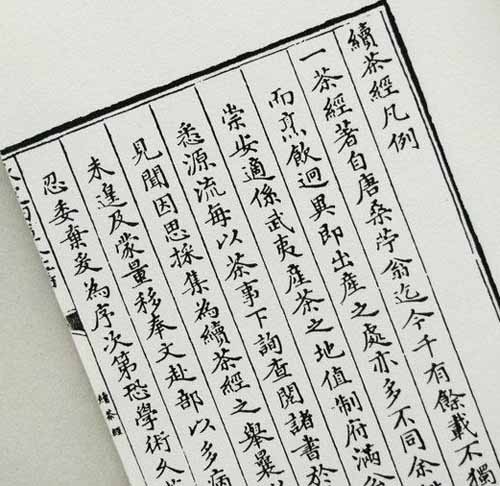 續茶經凡例
一茶經著自唐桑苧翁迄今千有餘載不獨
而烹飲迥異即出產之處亦多不同余
崇安適係武夷產茶之地值制府滿
悉源流每以茶事下詢查閱諸書於
見聞因思採集為續茶經之舉曩
未遑及蒙量移奉文赴部以多病
忍委棄爰為序次第恐學術久
續茶經